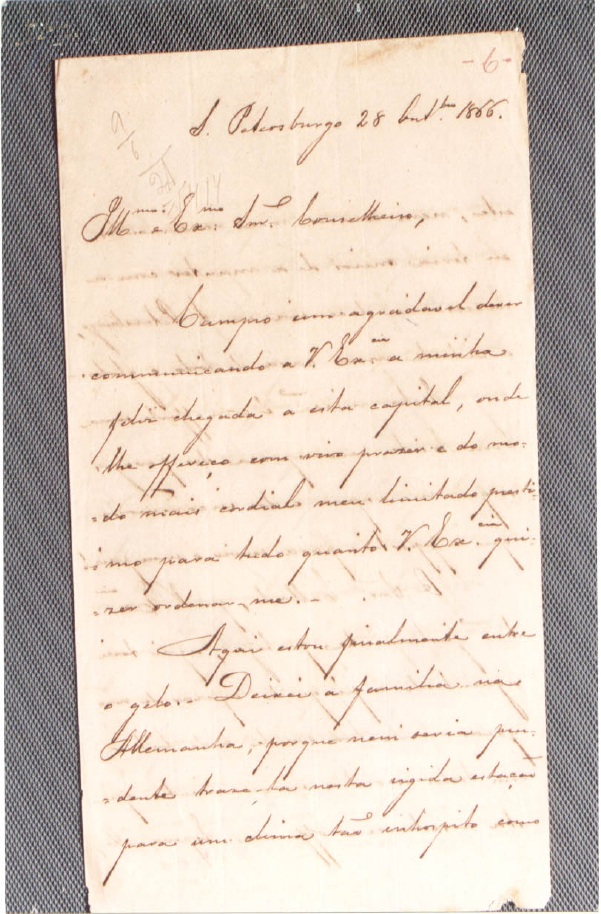 -6-
S. Petersburgo 28 Out.bro 1866.
Ill.mo e Ex.mo Snr. Conselheiro,
Cumpro um agradavel dever
communicando a V. Ex.cia a minha
feliz chegada a esta capital, onde
lhe offereço com vivo prazer e do mo-
-do mais cordial meu limitado presti-
-mo para tudo quanto V. Ex.cia qui-
-zer ordenar-me.
Aqui estou finalmente entre
o gelo. Deixei a familia na
Allemanha, porque nem seria pru-
-dente traze-la nesta rigida estação
para um clima tão inhospito como